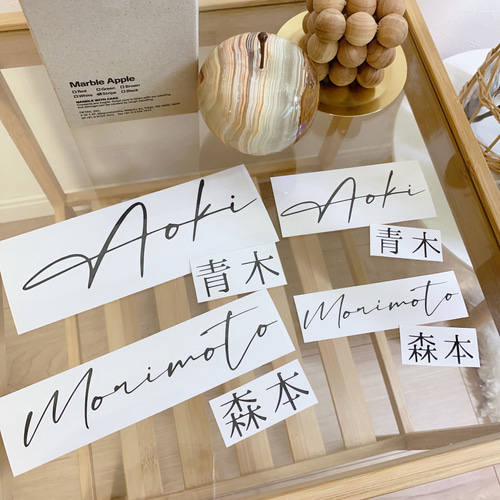 Marble Apple
Red Green Brown
White Stripe Black
HANDLE WITH CARE
Aoki
青木
Aoki
青木
Morimoto
森本
Morimoto
森本